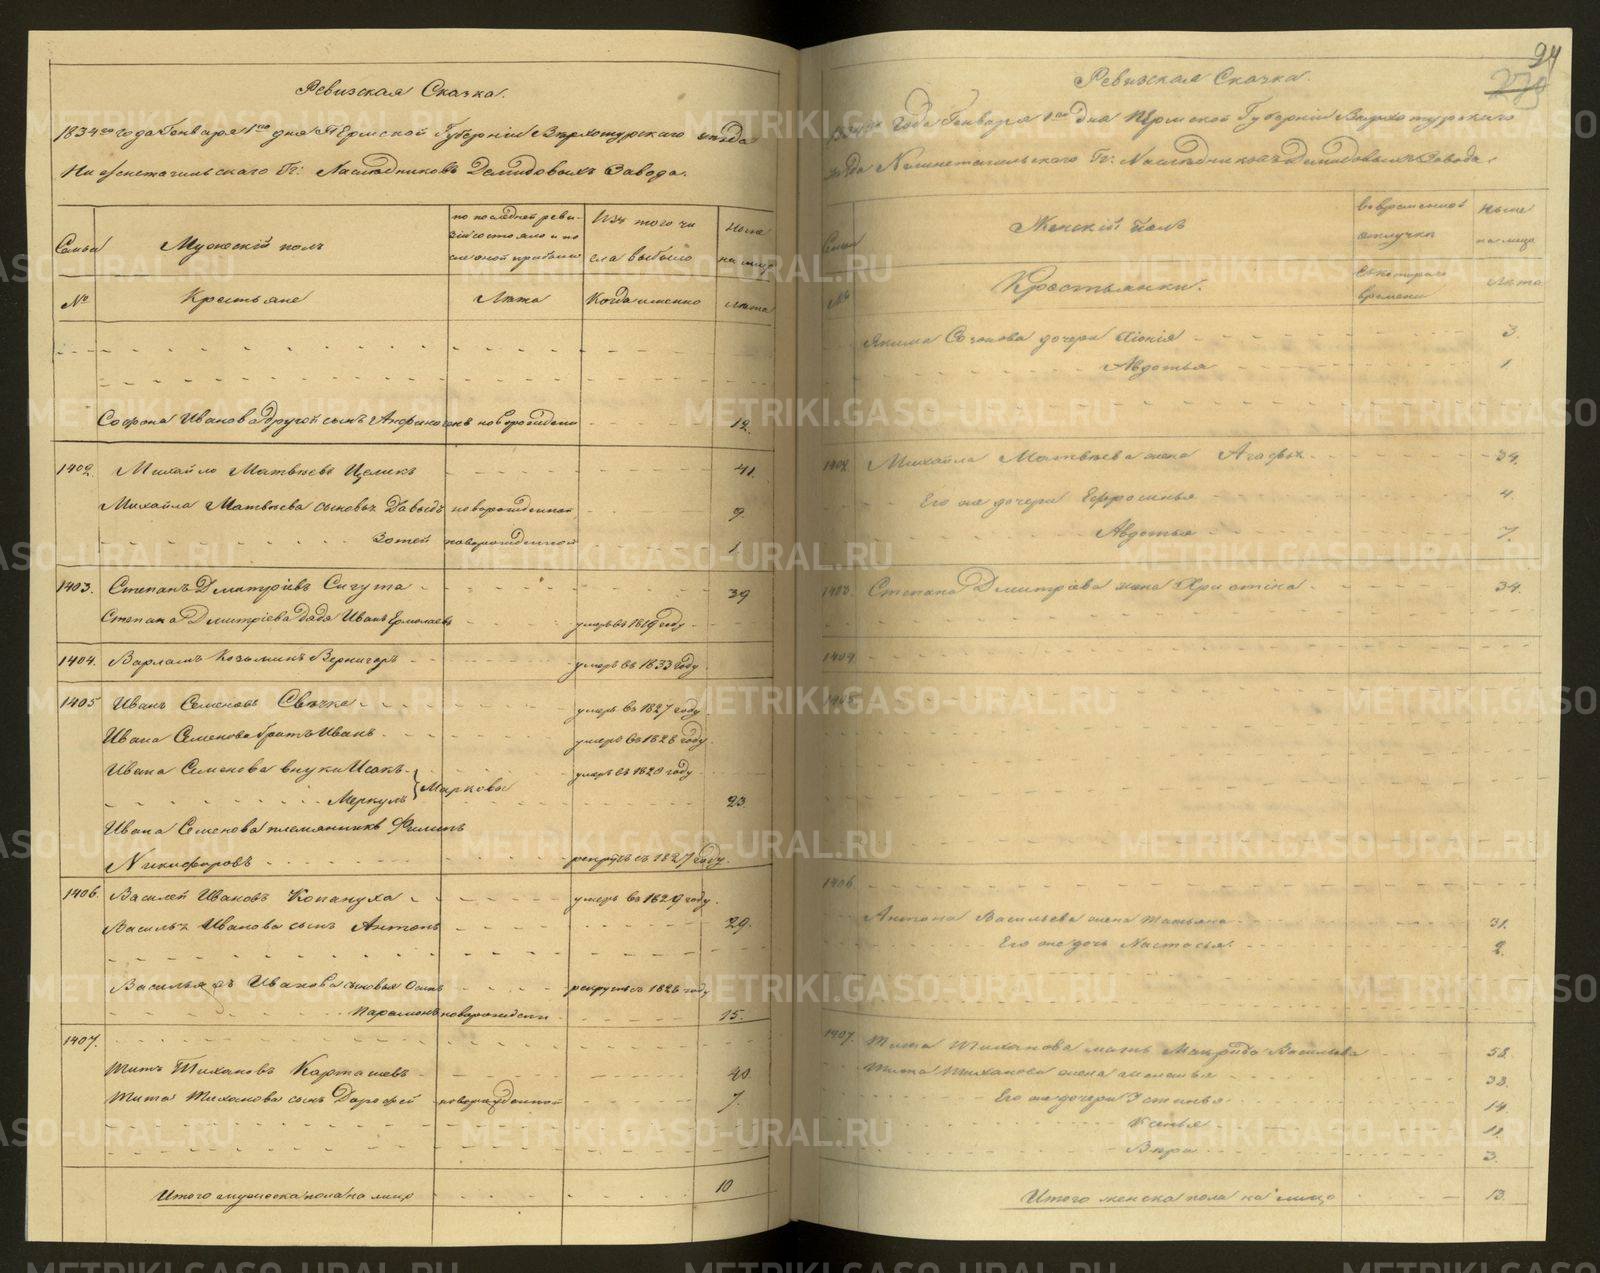 Ревизская Сказка.
1834го года Генваря 1го дня Пермской Губерніи Верхотурскаго уезда
Нижнетагильскаго Гг: Наследниковъ Демидовыхъ Завода.
Семьи
Мужескій полъ
по последней реви-
зіи состояло и по
сле оной прибыло
Изъ того чи
сла выбыло
Ныне
на лицо
№
Крестьяне
Лета
Когда именно
лета
Софона Иванова другой сынъ Анфиногенъ новорожденн 12.
1402. Михайло Матвеевъ Целикъ 41.
Михайла Матвеева сыновья Давыдъ новорожденной 9.
Зотей новорожденной 1.
1403. Степанъ Дмитріевъ Сигута 39
Степана Дмитріева дядя Иванъ Ермолаевъ умеръ въ 1819 году
1404. Варламъ Козьминъ Вернигоръ умеръ въ 1833 году
1405 Иванъ Семеновъ Свечка умеръ въ 1827 году
Ивана Семенова братъ Иванъ умеръ въ 1826 году
Ивана Семенова внуки Исакъ умеръ въ 1820 году
Меркулъ } Марковы 23.
Ивана Семенова племянникъ Филипъ
Никифоровъ рекрутъ съ 1827 году.
1406. Василей Ивановъ Копануха умеръ въ 1829 году.
Василья Иванова сынъ Антонъ 29.
Василья Иванова сыновья Осипъ рекрутъ съ 1826 году
Парамонъ новорожденн 15.
1407.
Титъ Тихановъ Карташевъ 40.
Тита Тиханова сынъ Дорофей новорожденной 7.
Итого мужеска пола на лицо 10
94
273
Ревизская Сказка.
1834го года Генваря 1го дня Пермской Губерніи Верхотурскаго
уезда Нижнетагильскаго Гг: Наследниковъ Демидовыхъ Завода.
Семьи
Женскій полъ
во временной
отлучки
Ныне
на лицо
№
Крестьянки.
съ котораго
времени
Лета
Якима Созонова дочери 3.
Авдотья 1
1402. Михайла Матвеева жена Агафья 34.
Его же дочери Ефросинья 4.
Авдотья 7.
1403. Степана Дмитріева жена Христина 34.
1404.
1405
1406.
Антона Васильева жена Татьяна 31.
Его же дочь Настасья 2.
1407. Тита Тиханова мать Макрида Васильева 58.
Тита Тиханова жена 38.
Его же дочери Устинья 14.
11
Вера 3.
Итого женска пола на лицо 13.
METRIKI.GASO-URAL.RU